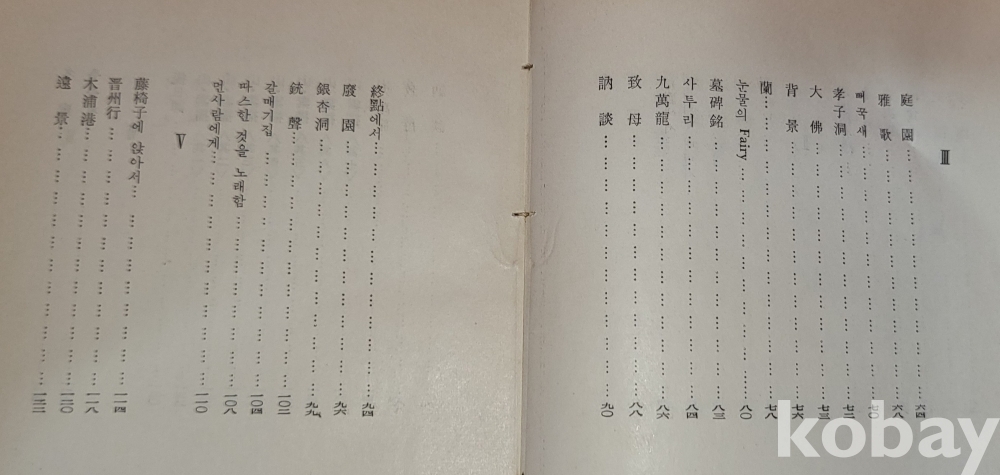 Ⅲ
庭園……………………六四
雅歌……………………六八
뻐꾹새……………………七〇
孝子洞……………………七二
大佛……………………七三
背景……………………七六
蘭……………………七八
눈물의 Fairy……………………八〇
墓碑銘……………………八三
사투리……………………八四
九萬龍……………………八六
致母……………………八八
訥談……………………九〇
終點에서……………………九四
廢園……………………九六
銀杏洞……………………九九
銃聲……………………一〇二
갈매기집……………………一〇四
따스한 것을 노래함……………………一〇八
먼사람에게……………………一一〇
Ⅴ
藤椅子에 앉아서……………………一一四
晋州行……………………一一八
木浦港……………………一二〇
遠景……………………一二二
kobay